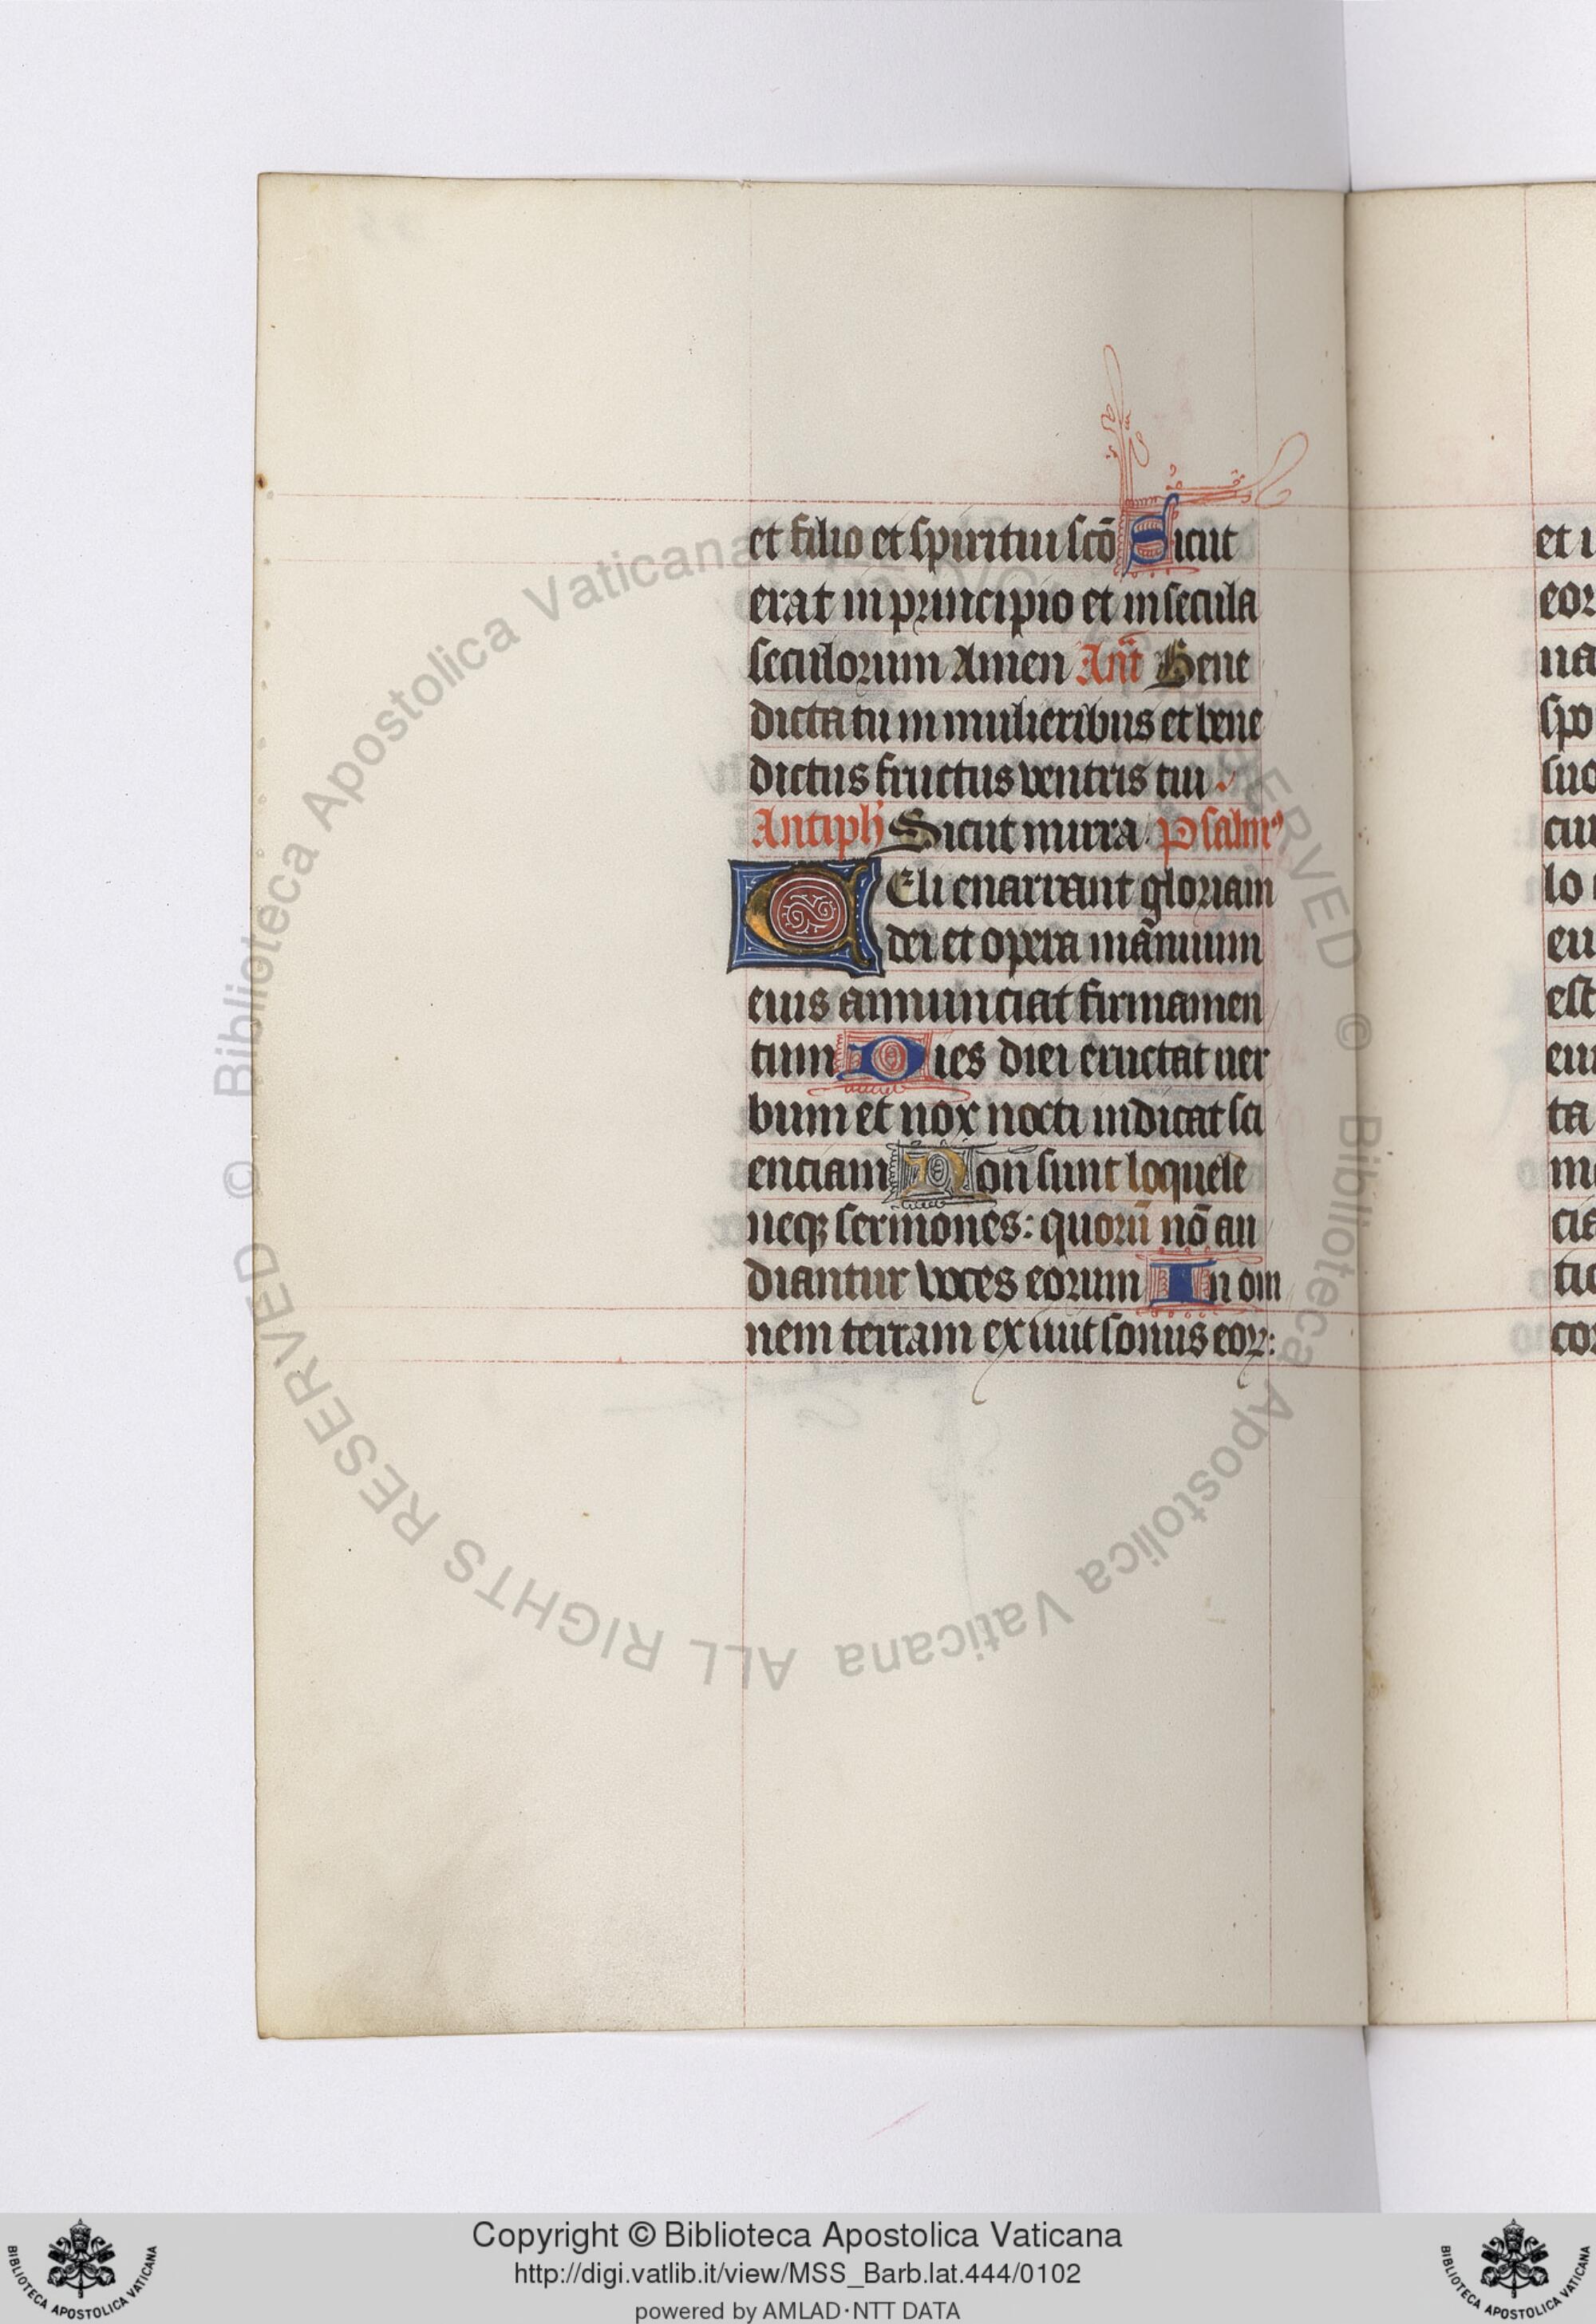 et filio et spiritui scō Sicut
erat in principio et in secula
seculorum Amen Ant̄ Bene
dicta tu in mulieribus et bene
dictus fructus ventris tui
Antiph Sicut mirra. Psalmꝰ
CEli enarrant gloriam
dei et opera manuum
eius annunciat firmamen
tum Dies diei eructat uer
bum et nox nocti indicat sci
enciam Non sunt loquele
neqȝ sermones: quorū nō au
diantur voces eorum In om
nem terram exiuit sonus eoꝝ:
et i
eor
na
spo
suo
cui
lo
eu
est
eiu
ta
cia
cor
© Biblioteca Apostolica Vaticana ALL RIGHTS RESERVED © Biblioteca Apostolica Vaticana ALL RIGHTS RESERVED
Copyright © Biblioteca Apostolica Vaticana
http://digi.vatlib.it/view/MSS_Barb.lat.444/0102
powered by AMLAD·NTT DATA
BIBLIOTECA APOSTOLICA VATICANA
BIBLIOTECA APOSTOLICA VATICANA